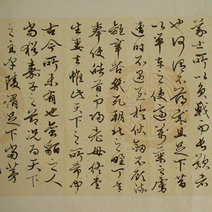 義士所以負戟而長歎者
也何謂不薄哉且足下昔
以單車之使適萬乘之虜
遭時不遇至於伏劍不顧流
離辛苦幾死朔北之野丁年
奉使皓首而歸老母終堂
生妻去帷此天下所希聞
古今所未有也蠻貊之人
尚猶嘉子之節況為天下
之主乎陵謂足下當享